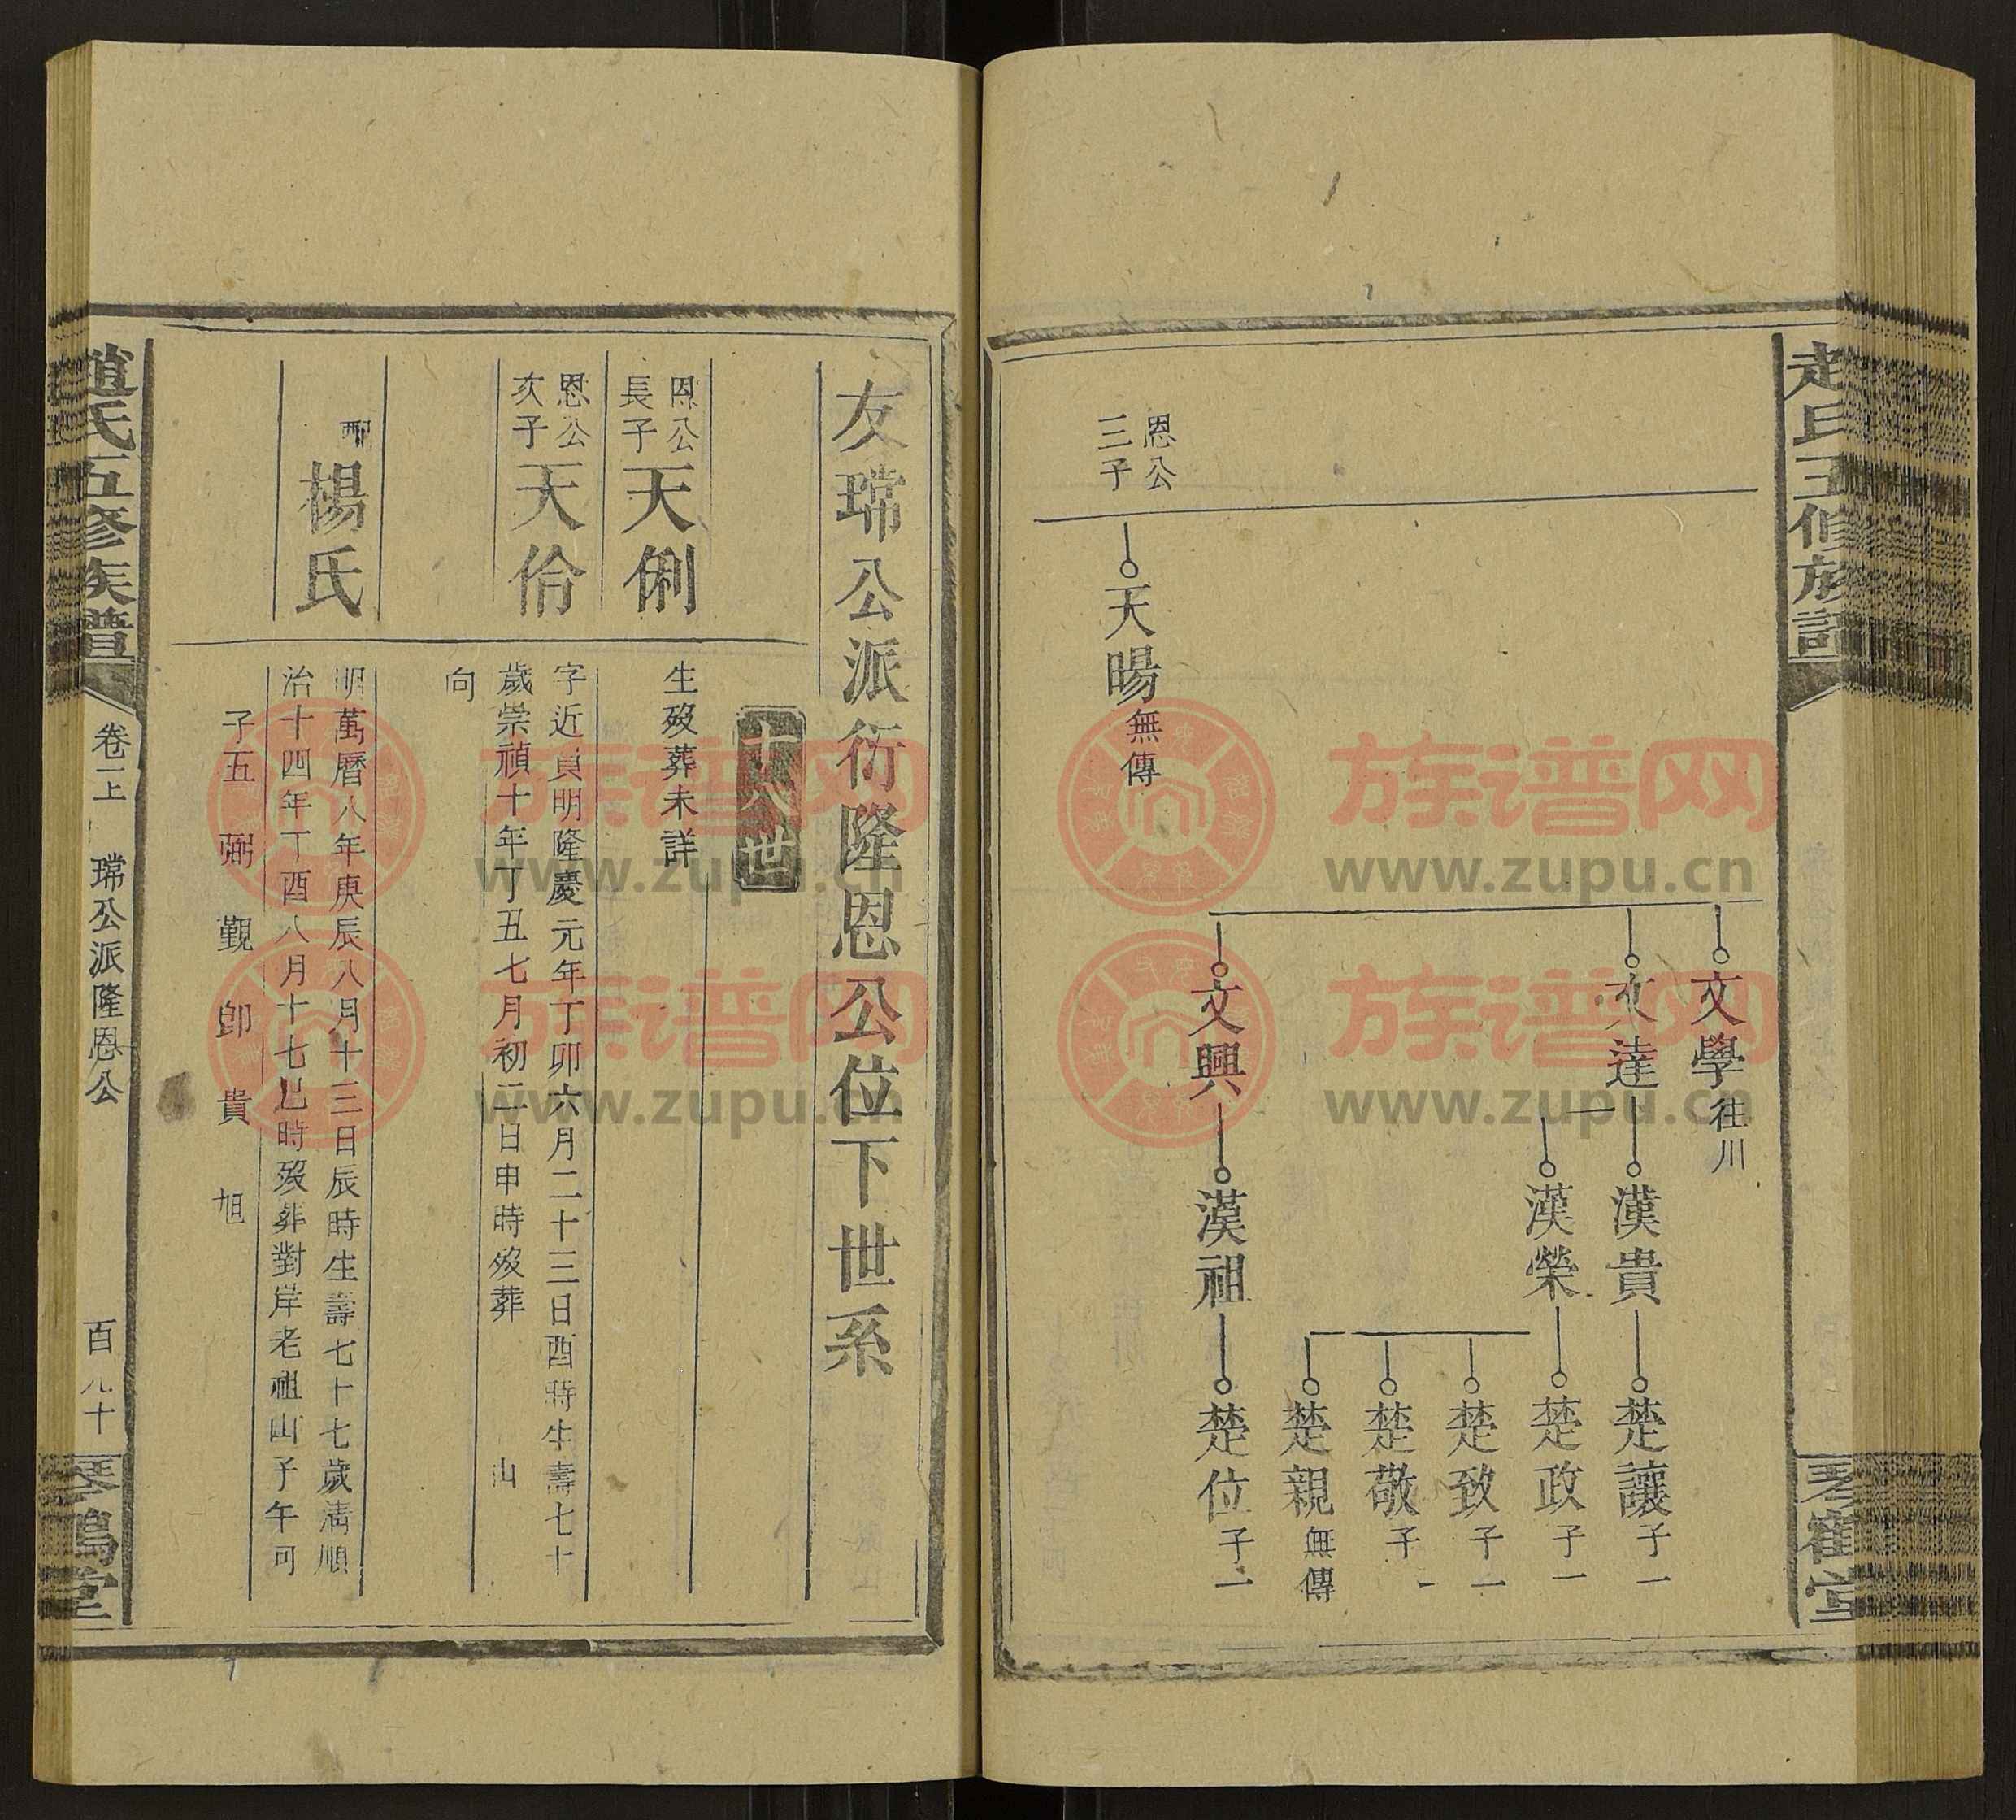 恩公三子
天暘無傳
文學往川
文達
文興
漢貴
漢榮
漢祖
楚讓子一
楚政子一
楚致子一
楚敬子一
楚親無傳
楚位子一
友瑺公派衍隆恩公位下世系
十八世
恩公長子
天俐
生歿葬未詳
恩公次子
天佮
字近貞明隆慶元年丁卯六月二十三日酉時生壽七十
歲崇禎十年丁丑七月初二日申時歿葬 山
向
配
楊氏
明萬曆八年庚辰八月十三日辰時生壽七十七歲淸順
治十四年丁酉八月十七巳時歿葬對岸老祖山子午向
子五 弼 觀 卽 貴 旭
趙氏五修族譜
卷二上
瑺公派隆恩公
百九十
琴鶴堂
族谱网
www.zupu.cn
族谱网
www.zupu.cn
族谱网
www.zupu.cn
族谱网
www.zupu.cn